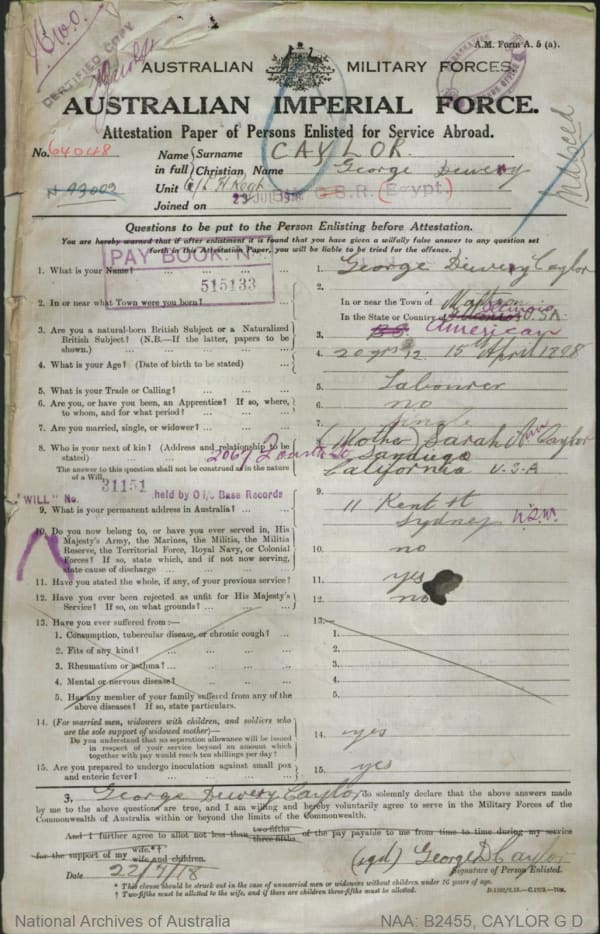 A.M. Form A. 5 (a).
CERTIFIED COPY
AUSTRALIAN MILITARY FORCES.
AUSTRALIAN IMPERIAL FORCE.
Attestation Paper of Persons Enlisted for Service Abroad.
No. 64048
Name in full { Surname CAYLOR.
Christian Name George Dewery
Unit
Joined on G.S.R. (Egypt)
Questions to be put to the Person Enlisting before Attestation.
You are hereby warned that if after enlistment it is found that you have given a wilfully false answer to any question set
forth in this Attestation Paper, you will be liable to be tried for the offence.
PAY BOOK. No.
515133
1. What is your Name? ... 1. George Dewery Caylor
2. In or near what Town were you born? ... 2. In or near the Town of
In the State or Country of Illinois U.S.A.
3. Are you a natural-born British Subject or a Naturalized
British Subject? (N.B.—If the latter, papers to be
shown.) ... 3. American
4. What is your Age? (Date of birth to be stated) ... 4. 20 yrs 15 April 1898
5. What is your Trade or Calling? ... 5. Labourer
6. Are you, or have you been, an Apprentice? If so, where,
to whom, and for what period? ... 6. no
7. Are you married, single, or widower? ... 7. single
8. Who is your next of kin? (Address and relationship to be
stated) ... 8. (Mother) Sarah Ann Caylor
The answer to this question shall not be construed as in the nature
of a Will.
California U.S.A
"WILL" No. 31151 held by O i/c Base Records
9. What is your permanent address in Australia? ... 9. 11 Kent St
Sydney N.S.W.
10. Do you now belong to, or have you ever served in, His
Majesty's Army, the Marines, the Militia, the Militia
Reserve, the Territorial Force, Royal Navy, or Colonial
Forces? If so, state which, and if not now serving,
state cause of discharge ... 10. no
11. Have you stated the whole, if any, of your previous service? 11. yes
12. Have you ever been rejected as unfit for His Majesty's
Service? If so, on what grounds? ... 12. no
13. Have you ever suffered from :— 13.—
1. Consumption, tubercular disease, or chronic cough? ... 1.
2. Fits of any kind? ... 2.
3. Rheumatism or asthma? ... 3.
4. Mental or nervous disease? ... 4.
5. Has any member of your family suffered from any of the
above diseases? If so, state particulars. 5.
14. (For married men, widowers with children, and soldiers who
are the sole support of widowed mother)—
Do you understand that no separation allowance will be issued
in respect of your service beyond an amount which
together with pay would reach ten shillings per day? 14. yes
15. Are you prepared to undergo inoculation against small pox
and enteric fever? ... 15. yes
I, George Dewery Caylor do solemnly declare that the above answers made
by me to the above questions are true, and I am willing and hereby voluntarily agree to serve in the Military Forces of the
Commonwealth of Australia within or beyond the limits of the Commonwealth.
And I further agree to allot not less than two-fifths three-fifths of the pay payable to me from time to time during my service
for the support of my wife.*† wife and children.
(sgd) George D Caylor
Date 22/7/18 Signature of Person Enlisted.
* This clause should be struck out in the case of unmarried men or widowers without children under 16 years of age.
† Two-fifths must be allotted to the wife, and if there are children three-fifths must be allotted.
National Archives of Australia NAA: B2455, CAYLOR G D